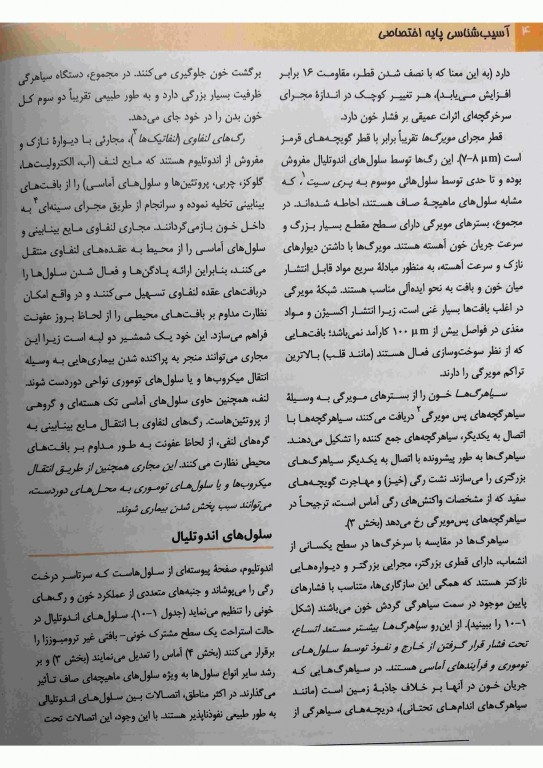 ۴ آسیب‌شناسی پایه اختصاصی
دارد (به این معنا که با نصف شدن قطر، مقاومت ۱۶ برابر
افزایش می‌یابد)، هر تغییر کوچک در اندازهٔ مجرای
سرخرگچه‌ای اثرات عمیقی بر فشار خون دارد.
قطر مجرای مویرگ‌ها تقریباً برابر با قطر گویچه‌های قرمز
است (۷-۸ μm). این رگ‌ها توسط سلول‌های اندوتلیال مفروش
بوده و تا حدی توسط سلول‌هائی موسوم به پری سیت۱، که
مشابه سلول‌های ماهیچهٔ صاف هستند، احاطه شده‌اند. در
مجموع، بسترهای مویرگی دارای سطح مقطع بسیار بزرگ و
سرعت جریان خون آهسته هستند. مویرگ‌ها با داشتن دیوارهای
نازک و سرعت آهسته، به منظور مبادلهٔ سریع مواد قابل انتشار
میان خون و بافت به نحو ایده‌آلی مناسب هستند. شبکهٔ مویرگی
در اغلب بافت‌ها بسیار غنی است، زیرا انتشار اکسیژن و مواد
مغذی در فواصل بیش از ۱۰۰ μm کارآمد نمی‌باشد؛ بافت‌هایی
که از نظر سوخت‌وسازی فعال هستند (مانند قلب) بالاترین
تراکم مویرگی را دارند.
سیاهرگ‌ها خون را از بسترهای مویرگی به وسیلهٔ
سیاهرگچه‌های پس مویرگی۲ دریافت می‌کنند، سیاهرگچه‌ها با
اتصال به یکدیگر، سیاهرگچه‌های جمع کننده را تشکیل می‌دهند.
سیاهرگ‌ها به طور پیشرونده با اتصال به یکدیگر سیاهرگ‌های
بزرگتری را می‌سازند. نشت رگی (خیز) و مهاجرت گویچه‌های
سفید که از مشخصات واکنش‌های رگی آماس است، ترجیحاً در
سیاهرگچه‌های پس‌مویرگی رخ می‌دهد (بخش ۳).
سیاهرگ‌ها در مقایسه با سرخرگ‌ها در سطح یکسانی از
انشعاب، دارای قطری بزرگتر، مجرایی بزرگتر و دیواره‌هایی
نازکتر هستند که همگی این سازگاری‌ها، متناسب با فشارهای
پایین موجود در سمت سیاهرگی گردش خون می‌باشند (شکل
۱-۱۰ را ببینید). از این‌رو سیاهرگ‌ها بیشتر مستعد اتساع،
تحت فشار قرار گرفتن از خارج و نفوذ توسط سلول‌های
توموری و فرآیندهای آماسی هستند. در سیاهرگ‌هایی که
جریان خون در آنها بر خلاف جاذبهٔ زمین است (مانند
سیاهرگ‌های اندام‌های تحتانی)، دریچه‌های سیاهرگی از
برگشت خون جلوگیری می‌کنند. در مجموع، دستگاه سیاهرگی
ظرفیت بسیار بزرگی دارد و به طور طبیعی تقریباً دو سوم کل
خون بدن را در خود جای می‌دهد.
رگ‌های لنفاوی (لنفاتیک‌ها۳)، مجارئی با دیوارهٔ نازک و
مفروش از اندوتلیوم هستند که مایع لنف (آب، الکترولیت‌ها،
گلوکز، چربی، پروتئین‌ها و سلول‌های آماسی) را از بافت‌های
بینابینی تخلیه نموده و سرانجام از طریق مجرای سینه‌ای۴ به
داخل خون بازمی‌گردانند. مجاری لنفاوی مایع بینابینی و
سلول‌های آماسی را از محیط به عقده‌های لنفاوی منتقل
می‌کنند، بنابراین ارائه پادگن‌ها و فعال شدن سلول‌ها را
دربافت‌های عقده لنفاوی تسهیل می‌کنند و در واقع امکان
نظارت مداوم بر بافت‌های محیطی را از لحاظ بروز عفونت
فراهم می‌سازد. این خود یک شمشیر دو لبه است زیرا این
مجاری می‌توانند منجر به پراکنده شدن بیماری‌هایی به وسیله
انتقال میکروب‌ها و یا سلول‌های توموری نواحی دوردست شوند.
لنف، همچنین حاوی سلول‌های آماسی تک هسته‌ای و گروهی
از پروتئین‌هاست. رگ‌های لنفاوی با انتقال مایع بینابینی به
گره‌های لنفی، از لحاظ عفونت به طور مداوم بر بافت‌های
محیطی نظارت می‌کنند. این مجاری همچنین از طریق انتقال
میکروب‌ها و یا سلول‌های توموری به محل‌های دوردست،
می‌توانند سبب پخش شدن بیماری شوند.
سلول‌های اندوتلیال
اندوتلیوم، صفحهٔ پیوسته‌ای از سلول‌هاست که سرتاسر درخت
رگی را می‌پوشاند و جنبه‌های متعددی از عملکرد خون و رگ‌های
خونی را تنظیم می‌نماید (جدول ۱-۱۰). سلول‌های اندوتلیال در
حالت استراحت یک سطح مشترک خونی-بافتی غیر ترومبوززا را
برقرار می‌کنند (بخش ۴) آماس را تعدیل می‌نمایند (بخش ۳) و بر
رشد سایر انواع سلول‌ها به ویژه سلول‌های ماهیچه‌ای صاف تأثیر
می‌گذارند. در اکثر مناطق، اتصالات بین سلول‌های اندوتلیالی
به طور طبیعی نفوذناپذیر هستند. با این وجود، این اتصالات تحت